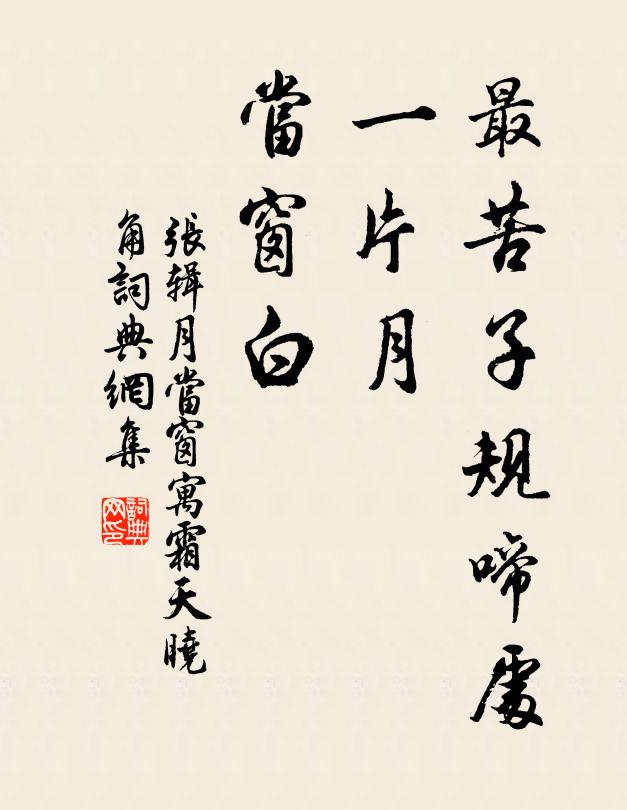 最苦子規啼處
一片月
當窗白
張輯月當窗寓霜天曉
角詞典網集
詞典
网印